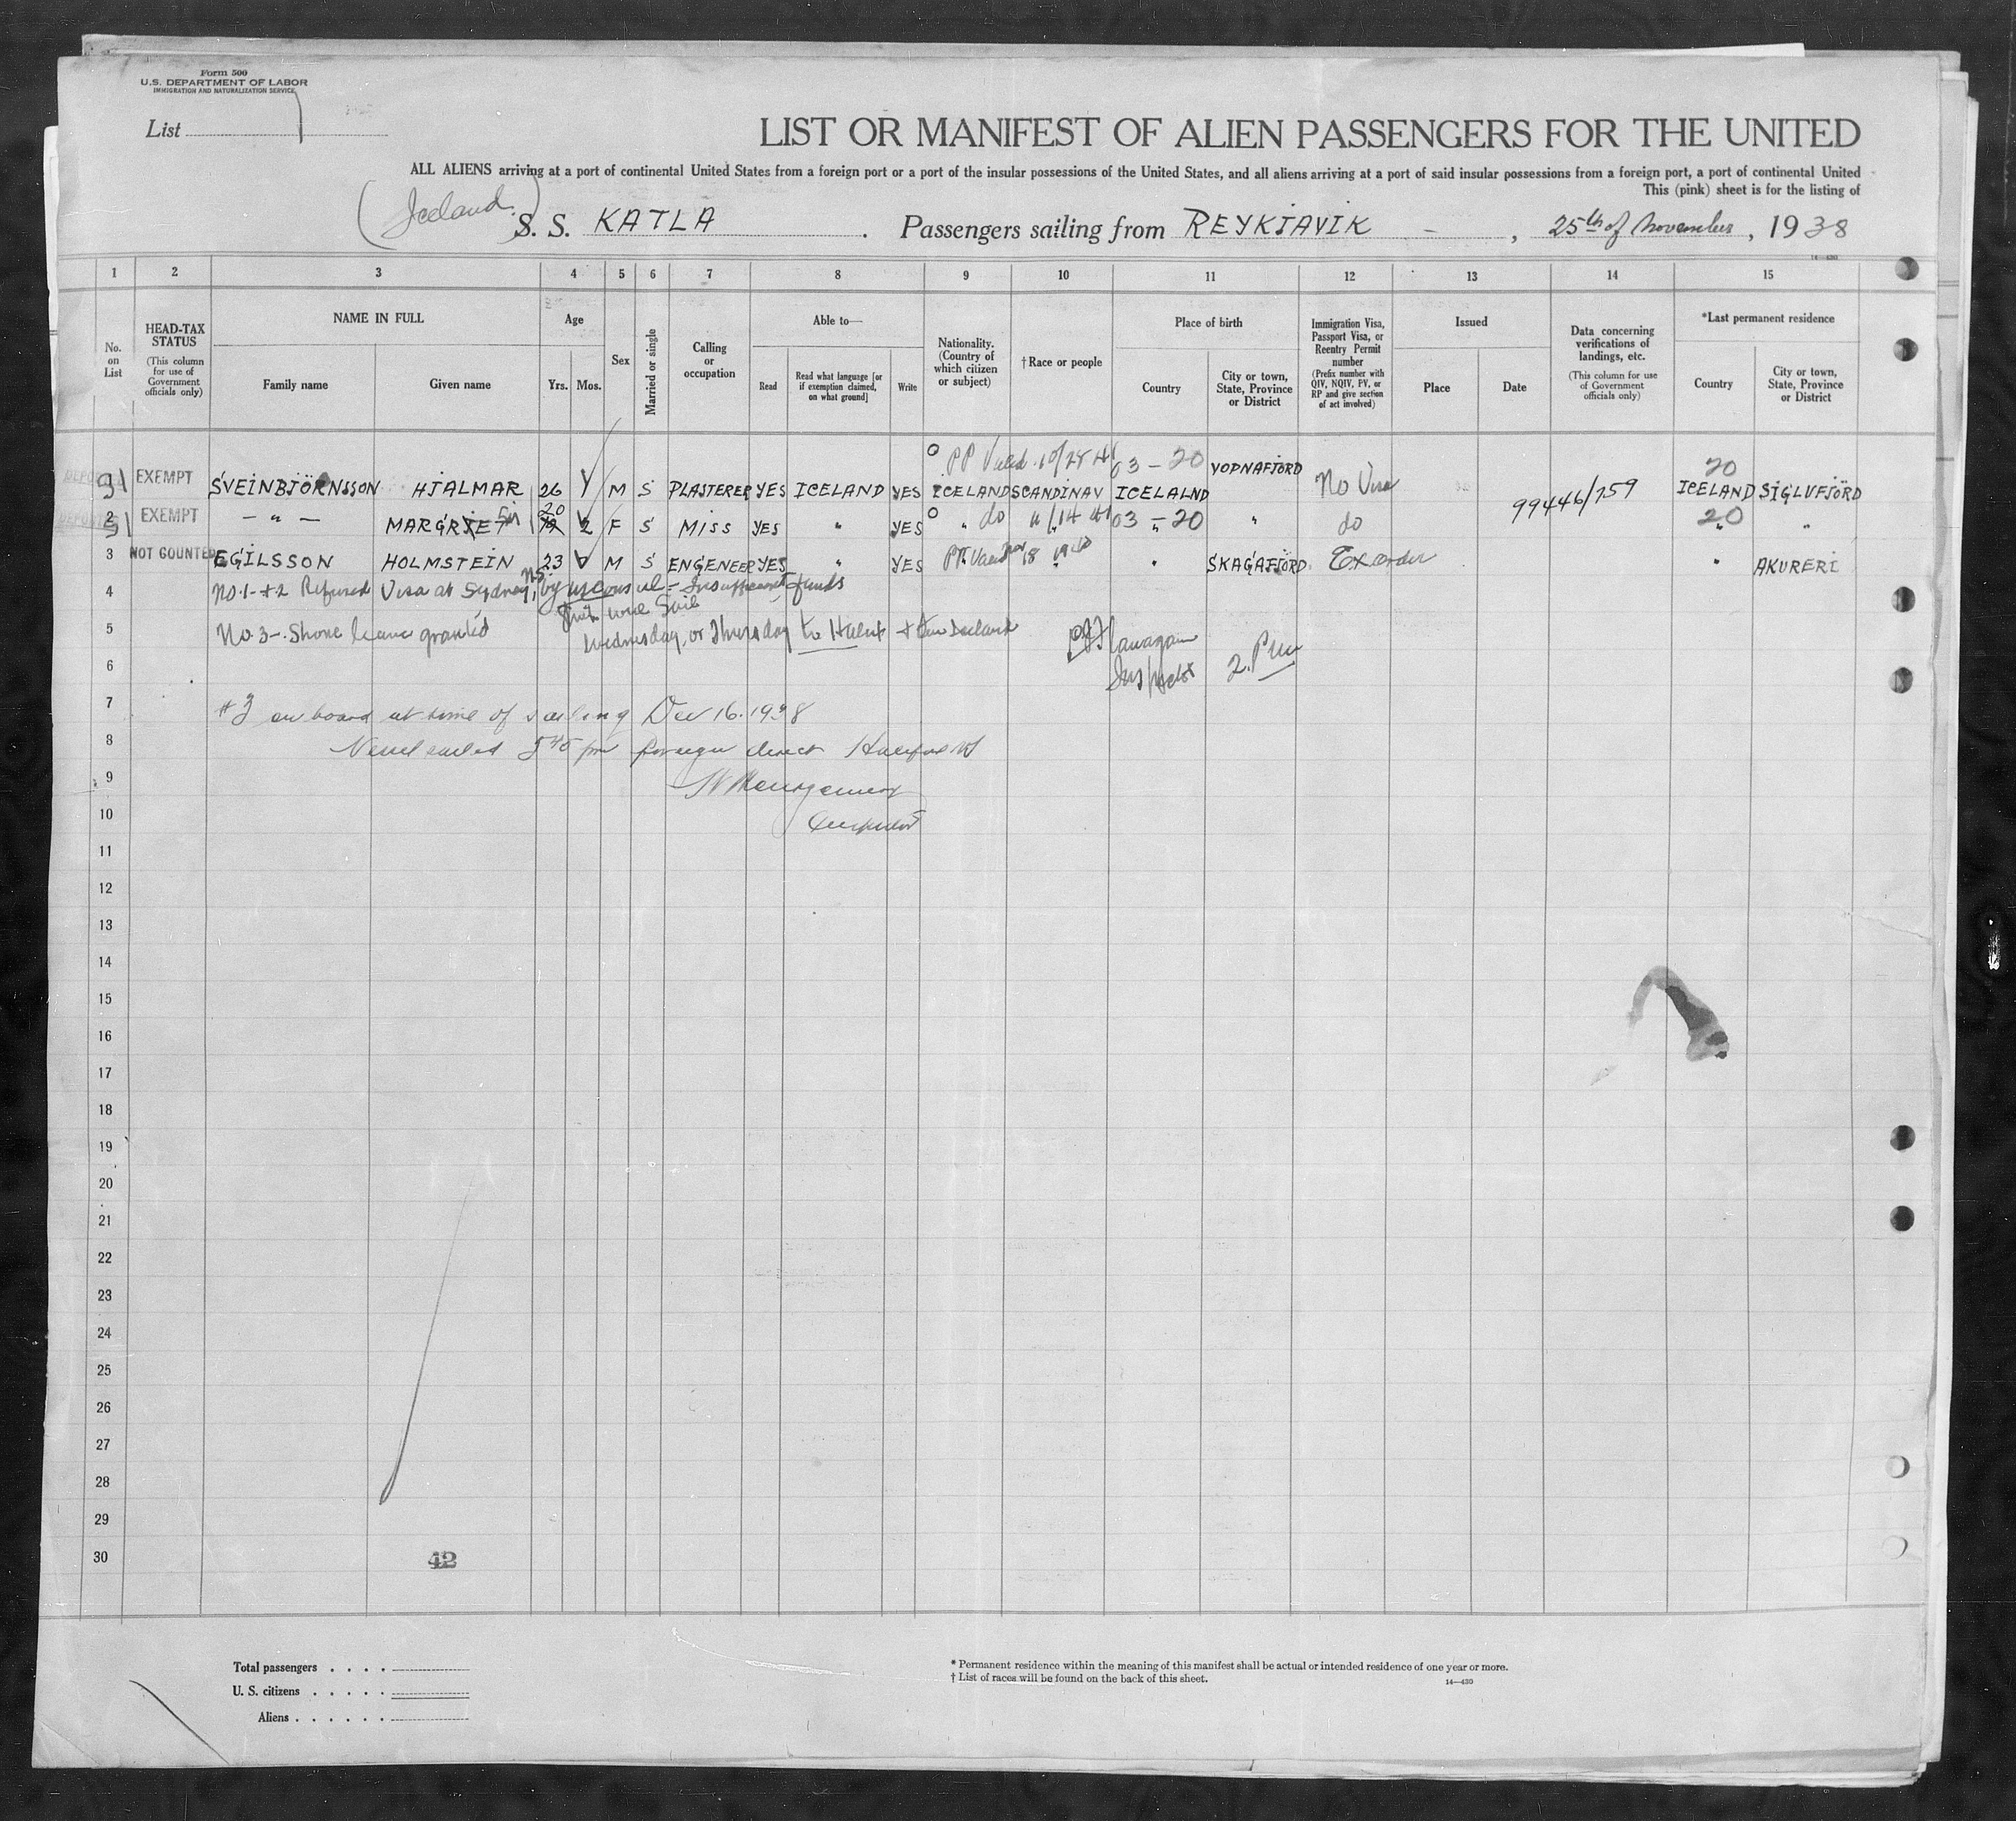 Form 500
U.S. DEPARTMENT OF LABOR
IMMIGRATION AND NATURALIZATION SERVICE
List
LIST OR MANIFEST OF ALIEN PASSENGERS FOR THE UNITED
ALL ALIENS arriving at a port of continental United States from a foreign port or a port of the insular possessions of the United States, and all aliens arriving at a port of said insular possessions from a foreign port, a port of continental United
This (pink) sheet is for the listing of
(Iceland.) S. S. KATLA. Passengers sailing from REYKJAVIK - , 25th of November, 1938
14-430
1 2 3 4 5 6 7 8 9 10 11 12 13 14 15
No. on List
HEAD-TAX STATUS (This column for use of Government officials only)
NAME IN FULL
Family name
Given name
Age
Yrs. Mos.
Sex
Married or single
Calling or occupation
Able to—
Read
Read what language [or if exemption claimed, on what ground]
Write
Nationality. (Country of which citizen or subject)
†Race or people
Place of birth
Country
City or town, State, Province or District
Immigration Visa, Passport Visa, or Reentry Permit number (Prefix number with QIV, NQIV, PV, or RP and give section of act involved)
Issued
Place
Date
Data concerning verifications of landings, etc. (This column for use of Government officials only)
*Last permanent residence
Country
City or town, State, Province or District
PP Valid 10/28 41 03 - 20 VOPNAFJORD 20
EXEMPT SVEINBJÖRNSSON HJALMAR 26 M S PLASTERER YES ICELAND YES ICELAND SCANDINAV ICELALND No Visa 99446/759 ICELAND SIGLUFJÖRD
20
2 EXEMPT - " - MARGRIET 2 F S MISS YES " YES " do 11/14 41 03 - 20 " do 20 "
3 NOT COUNTED EGILSSON HOLMSTEIN 23 M S ENGENEER YES " YES PP. Valid Nov 18 1940 " SKAGAFJORD Ex order " AKURERI
4 No. 1- +2 Refused Visa at Sydney, N.S. by us consul - Insufficient funds
5 No 3-. Shore leave granted
Wednesday, or Thursday to
Flanagan
Inspector 2. P M
6
7 #3 on board at time of sailing Dec 16. 1938
8 Vessel sailed 5 45 pm foreign direct Halifax NS
9
10 Inspector
11
12
13
14
15
16
17
18
19
20
21
22
23
24
25
26
27
28
29
30
42
Total passengers . . . .
U. S. citizens . . . . .
Aliens . . . . . .
* Permanent residence within the meaning of this manifest shall be actual or intended residence of one year or more.
† List of races will be found on the back of this sheet.
14—430